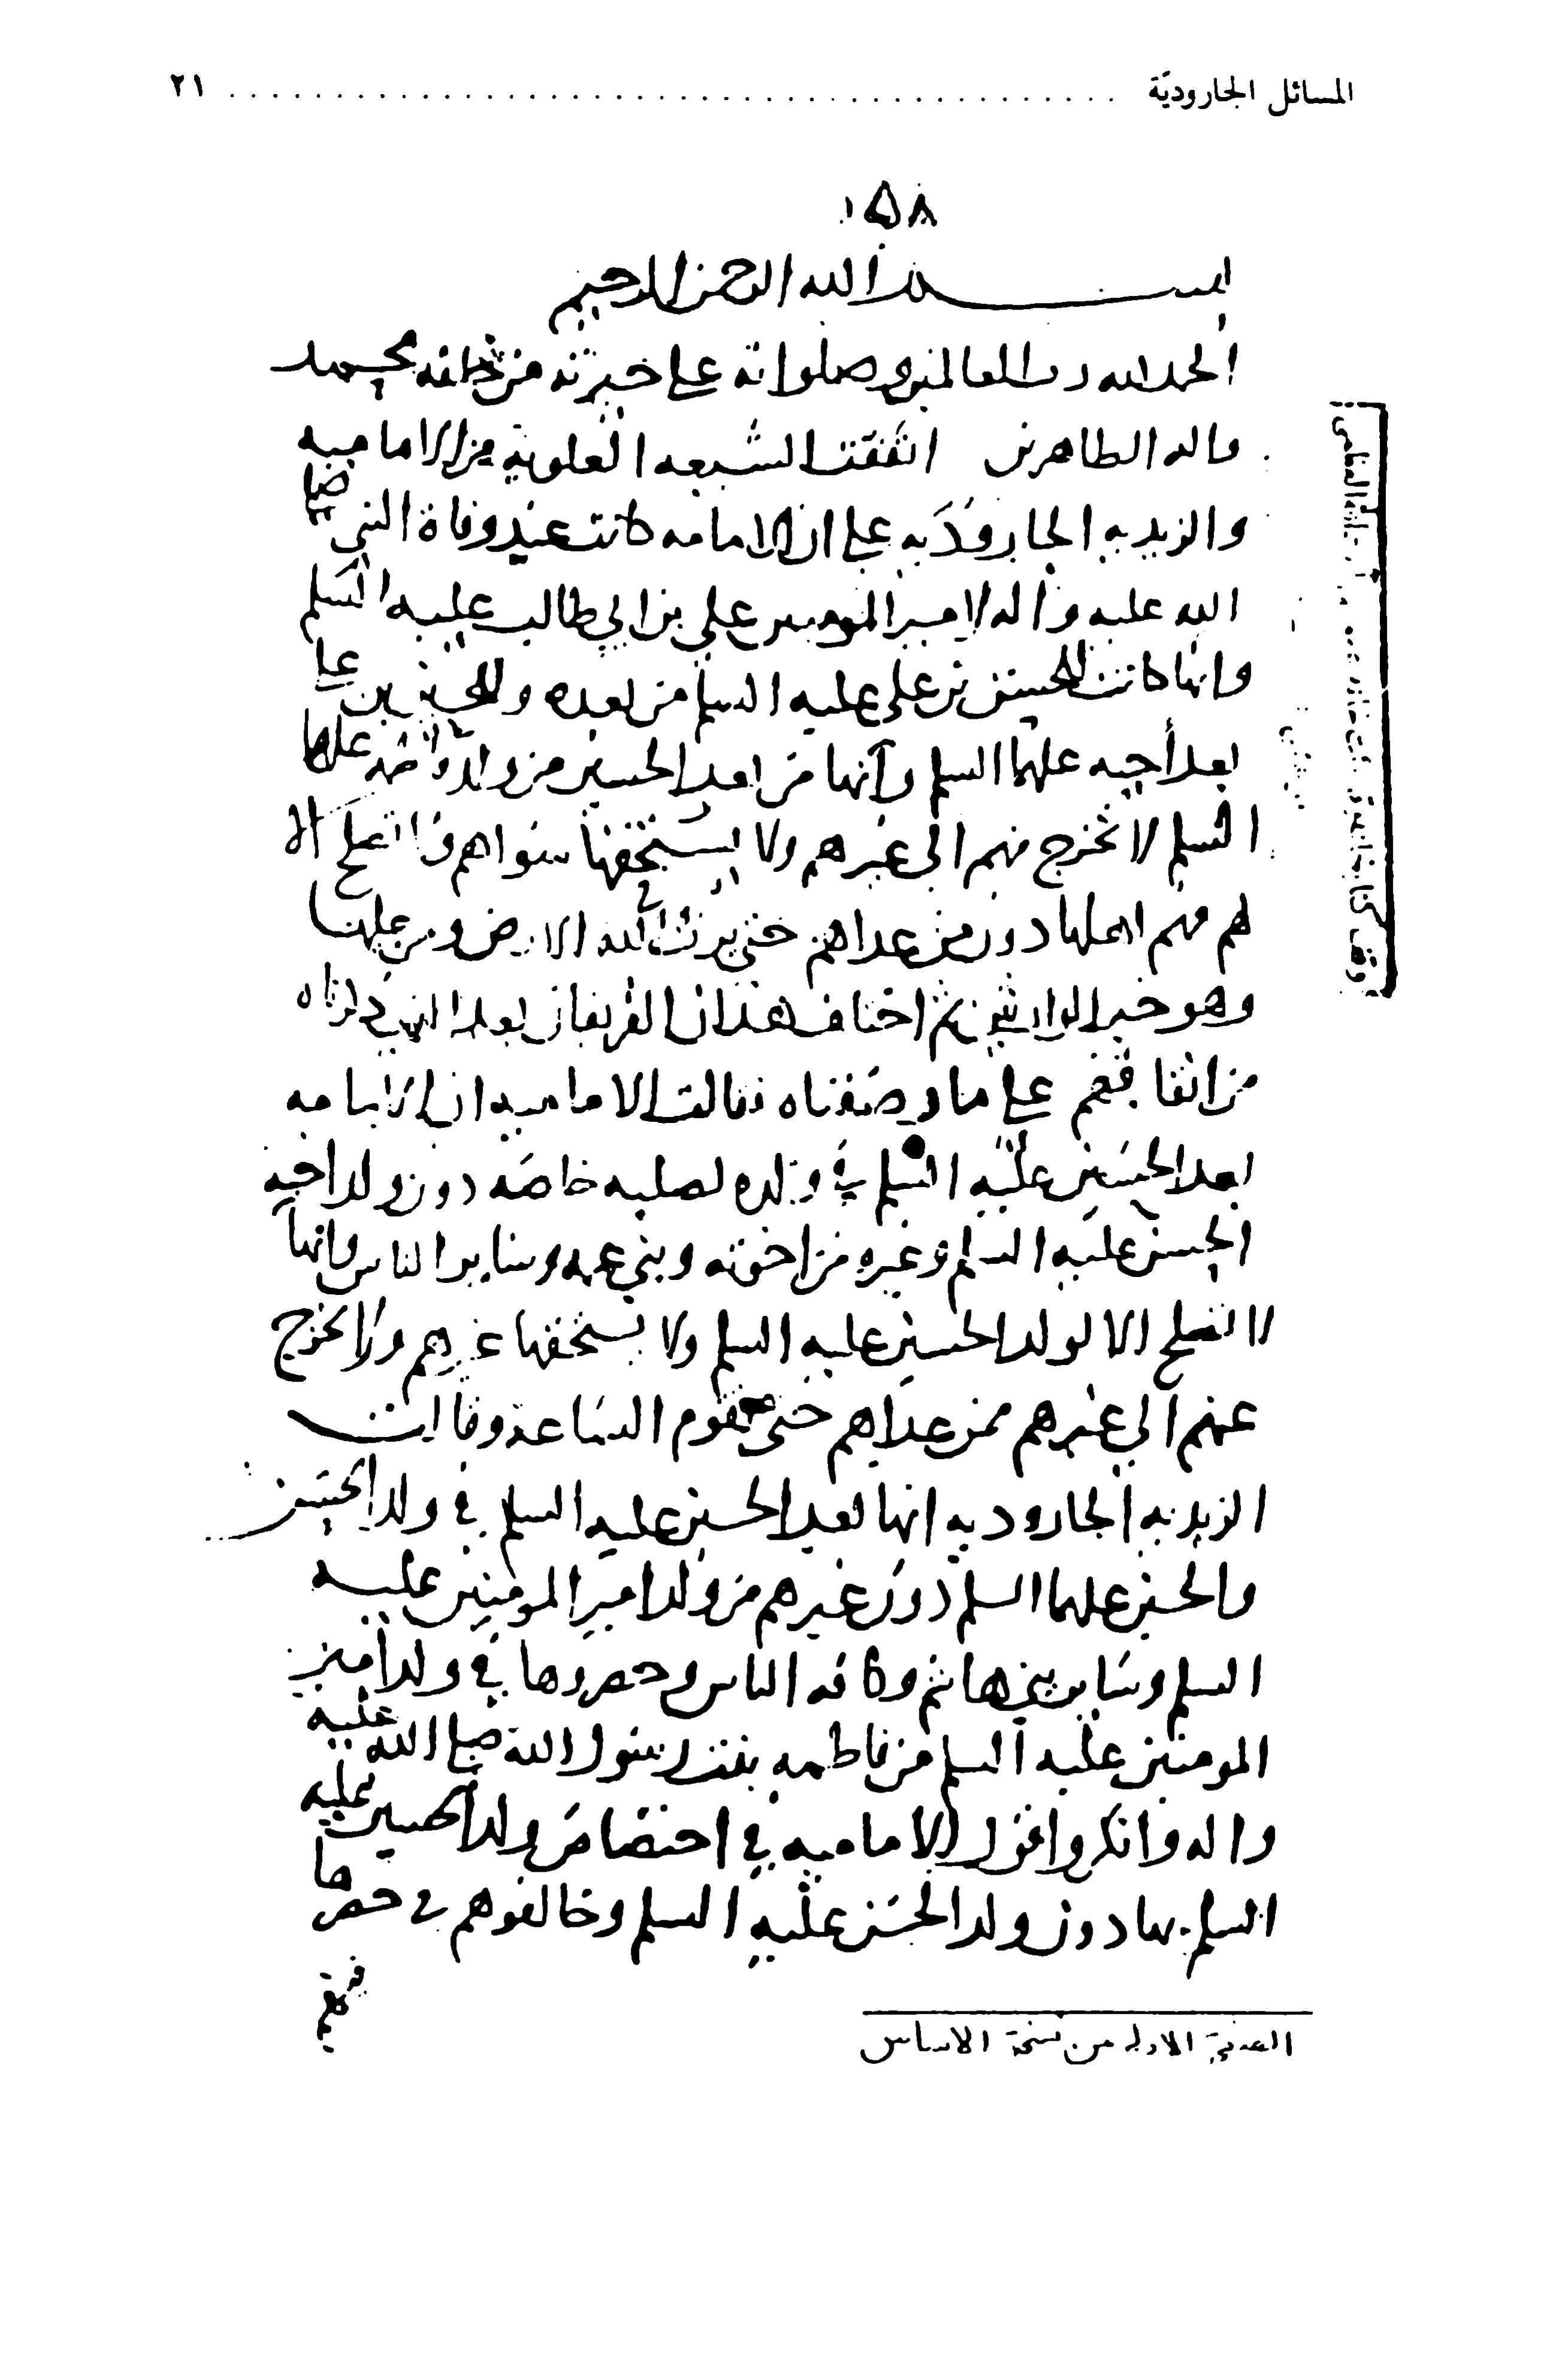 المسائل الجاروديّة ........................................ ٢١
١٥٨
بسم الله الرحمن الرحيم
الحمد لله رب العالمين وصلواته على خيرته من خلقه محمد
واله الطاهرين اتفقت الشيعه العلوية من الاماميه
والزيديه الجاروديه على ان الامامه كانت عند وفاة النبي صلى
الله عليه واله لامير المومنين علي بن ابي طالب عليه السلم
وانها كانت للحسن بن علي عليه السلم من بعده وللحسين بن علي
بعد أخيه عليهما السلم وأنها من بعد الحسين من ولد فاطمه عليها
السلم لا تخرج منهم الى غيرهم ولا يستحقها سواهم ولا تصلح الا
لهم فهم اهلها دون من عداهم حتى يرث الله الارض ومن عليها
وهو خير الوارثين ثم اختلف هذان الفريقان بعد الذي ذكرناه
من اتفاقهم على ما وصفناه فقالت الاماميه ان الامامه
بعد الحسين عليه السلم في ولده لصلبه خاصه دون ولد اخيه
الحسن عليه السلم وغيره من اخوته وبني عمه وساير الناس وانها
لا تصلح الا لولد الحسين عليه السلم ولا يستحقها غيرهم ولا تخرج
عنهم الى غيرهم ممن عداهم حتى تقوم الساعة وقالت
الزيديه الجاروديه انها بعد الحسين عليه السلم في ولد الحسن
والحسين عليهما السلم دون غيرهم من ولد امير المومنين عليه
السلم وساير بني هاشم وكافه الناس وحصروها في ولد امير
المومنين عليه السلم من فاطمه بنت رسول الله صلى الله عليه
واله وانكروا قول الاماميه في اختصاص ولد الحسين عليه
السلم بها دون ولد الحسن عليه السلم وخالفوهم في حصرها
فيهم
الصفحة الاولى من نسخة الاساس